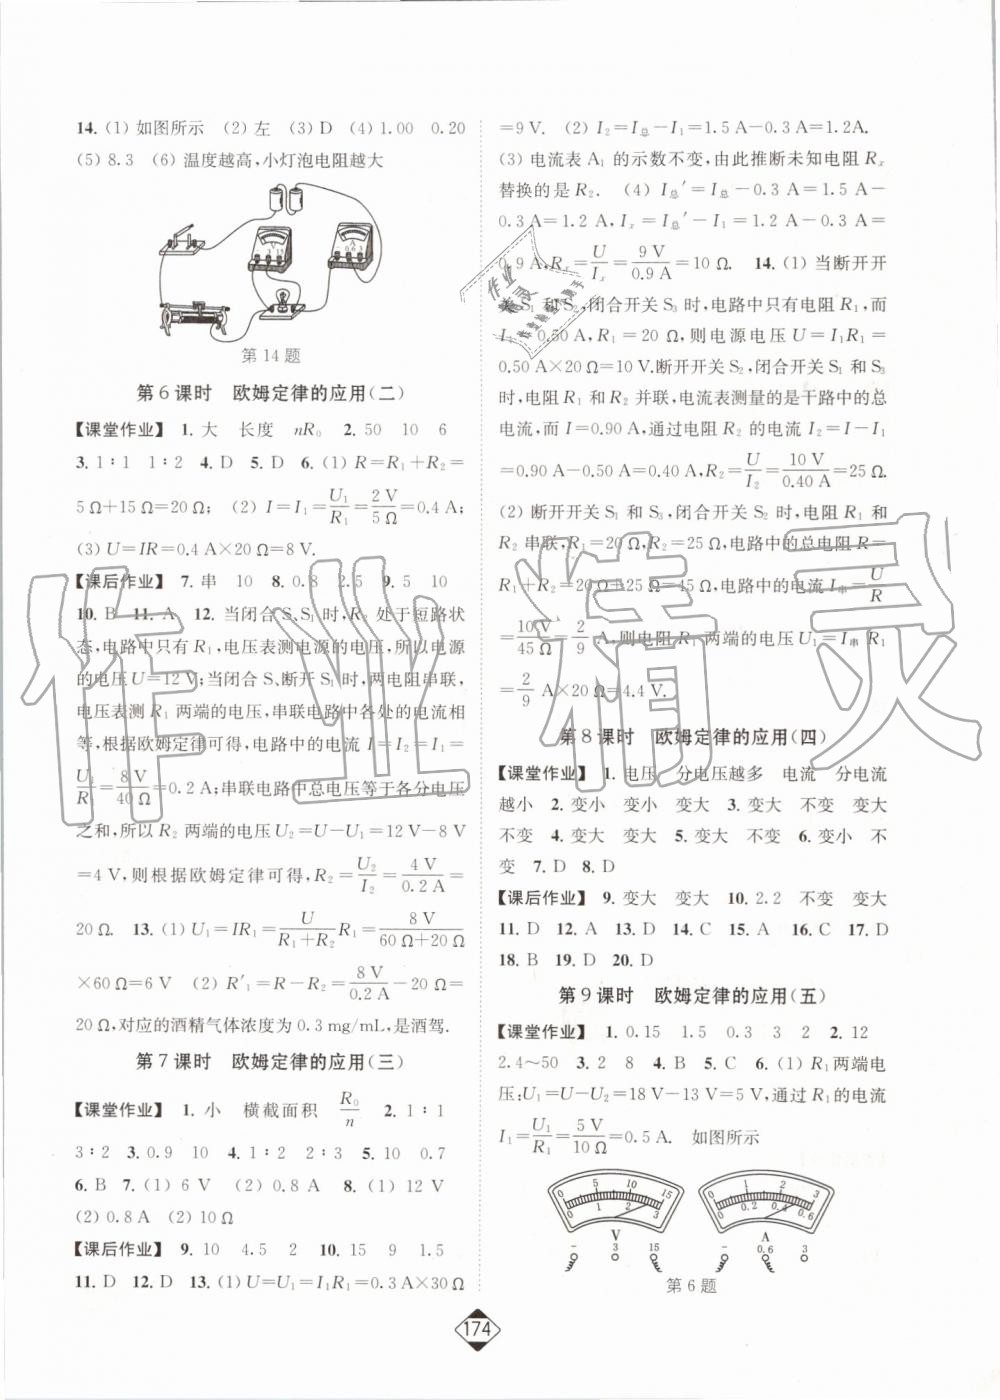 14. (1) 如图所示 (2) 左 (3) D (4) 1.00 0.20
(5) 8.3 (6) 温度越高,小灯泡电阻越大
第14题
第6课时 欧姆定律的应用(二)
【课堂作业】 1. 大 长度 nR₀ 2. 50 10 6
3. 1∶1 1∶2 4. D 5. D 6. (1) R=R₁+R₂=
5 Ω+15 Ω=20 Ω; (2) I=I₁=U₁/R₁=2 V/5 Ω=0.4 A;
(3) U=IR=0.4 A×20 Ω=8 V.
【课后作业】 7. 串 10 8. 0.8 2.5 9. 5 10
10. B 11. A 12. 当闭合 S、S₁ 时,R₂ 处于短路状
态,电路中只有 R₁,电压表测电源的电压,所以电源
的电压 U=12 V;当闭合 S、断开 S₁ 时,两电阻串联,
电压表测 R₁ 两端的电压,串联电路中各处的电流相
等,根据欧姆定律可得,电路中的电流 I=I₂=I₁=
U₁/R₁=8 V/40 Ω=0.2 A;串联电路中总电压等于各分电压
之和,所以 R₂ 两端的电压 U₂=U-U₁=12 V-8 V
=4 V,则根据欧姆定律可得,R₂=U₂/I₂=4 V/0.2 A=
20 Ω. 13. (1) U₁=IR₁=U/(R₁+R₂)R₁=8 V/(60 Ω+20 Ω)
×60 Ω=6 V (2) R′₁=R-R₂=8 V/0.2 A-20 Ω=
20 Ω,对应的酒精气体浓度为 0.3 mg/mL,是酒驾.
第7课时 欧姆定律的应用(三)
【课堂作业】 1. 小 横截面积 R₀/n 2. 1∶1
3∶2 3. 0.9 10 4. 1∶1 2∶3 5. 10 0.7
6. B 7. (1) 6 V (2) 0.8 A 8. (1) 12 V
(2) 0.8 A (2) 10 Ω
【课后作业】 9. 10 4.5 2 10. 15 9 1.5
11. D 12. D 13. (1) U=U₁=I₁R₁=0.3 A×30 Ω
=9 V. (2) I₂=I总-I₁=1.5 A-0.3 A=1.2A.
(3) 电流表 A₁ 的示数不变,由此推断未知电阻 Rₓ
替换的是 R₂. (4) I总′=I总-0.3 A=1.5 A-
0.3 A=1.2 A,Iₓ=I总′-I₁=1.2 A-0.3 A=
0.9 A,Rₓ=U/Iₓ=9 V/0.9 A=10 Ω. 14. (1) 当断开开
关 S₁ 和 S₂,闭合开关 S₃ 时,电路中只有电阻 R₁,而
I₁=0.50 A,R₁=20 Ω,则电源电压 U=I₁R₁=
0.50 A×20 Ω=10 V. 断开开关 S₂,闭合开关 S₁ 和 S₃
时,电阻 R₁ 和 R₂ 并联,电流表测量的是干路中的总
电流,而 I=0.90 A,通过电阻 R₂ 的电流 I₂=I-I₁
=0.90 A-0.50 A=0.40 A,R₂=U/I₂=10 V/0.40 A=25 Ω.
(2) 断开开关 S₁ 和 S₃,闭合开关 S₂ 时,电阻 R₁ 和
R₂ 串联,R₁=20 Ω,R₂=25 Ω,电路中的总电阻 R=
R₁+R₂=20 Ω+25 Ω=45 Ω,电路中的电流 I串=U/R
=10 V/45 Ω=2/9 A,则电阻 R₁ 两端的电压 U₁=I串 R₁
=2/9 A×20 Ω=4.4 V.
第8课时 欧姆定律的应用(四)
【课堂作业】 1. 电压 分电压越多 电流 分电流
越小 2. 变小 变小 变大 3. 变大 不变 变大
不变 4. 变大 变大 5. 变大 不变 6. 变小 不
变 7. D 8. D
【课后作业】 9. 变大 变大 10. 2.2 不变 变大
11. D 12. A 13. D 14. C 15. A 16. C 17. D
18. B 19. D 20. D
第9课时 欧姆定律的应用(五)
【课堂作业】 1. 0.15 1.5 0.3 3 2 2. 12
2.4~50 3. 2 8 4. B 5. C 6. (1) R₁ 两端电
压:U₁=U-U₂=18 V-13 V=5 V,通过 R₁ 的电流
I₁=U₁/R₁=5 V/10 Ω=0.5 A. 如图所示
0 5 10 15
0 1 2 3
V
- 3 15
0 1 2 3
0 0.2 0.4 0.6
A
- 0.6 3
第6题
174
作业精灵